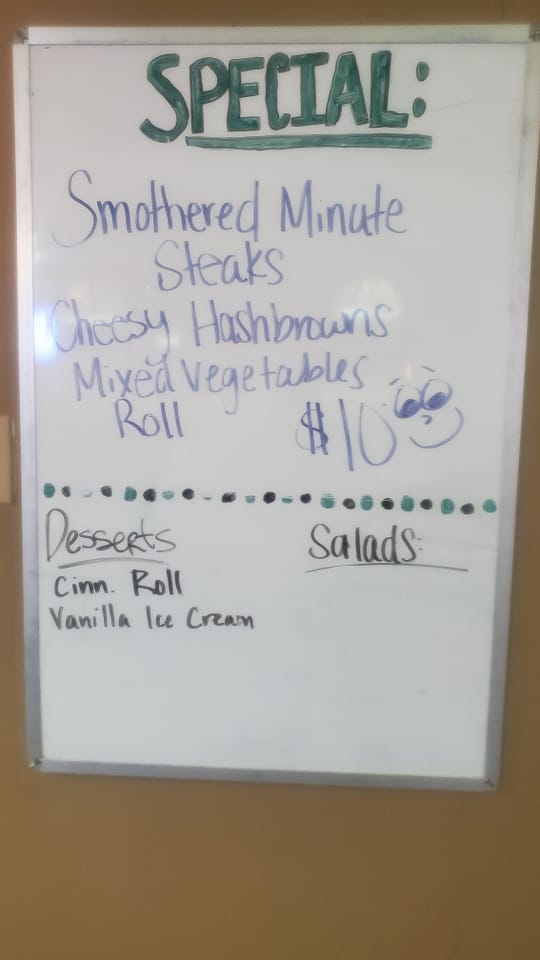 SPECIAL:
Smothered Minute
Steaks
Cheesy Hashbrowns
Mixed Vegetables
Roll $10
Desserts Salads:
Cinn. Roll
Vanilla Ice Cream